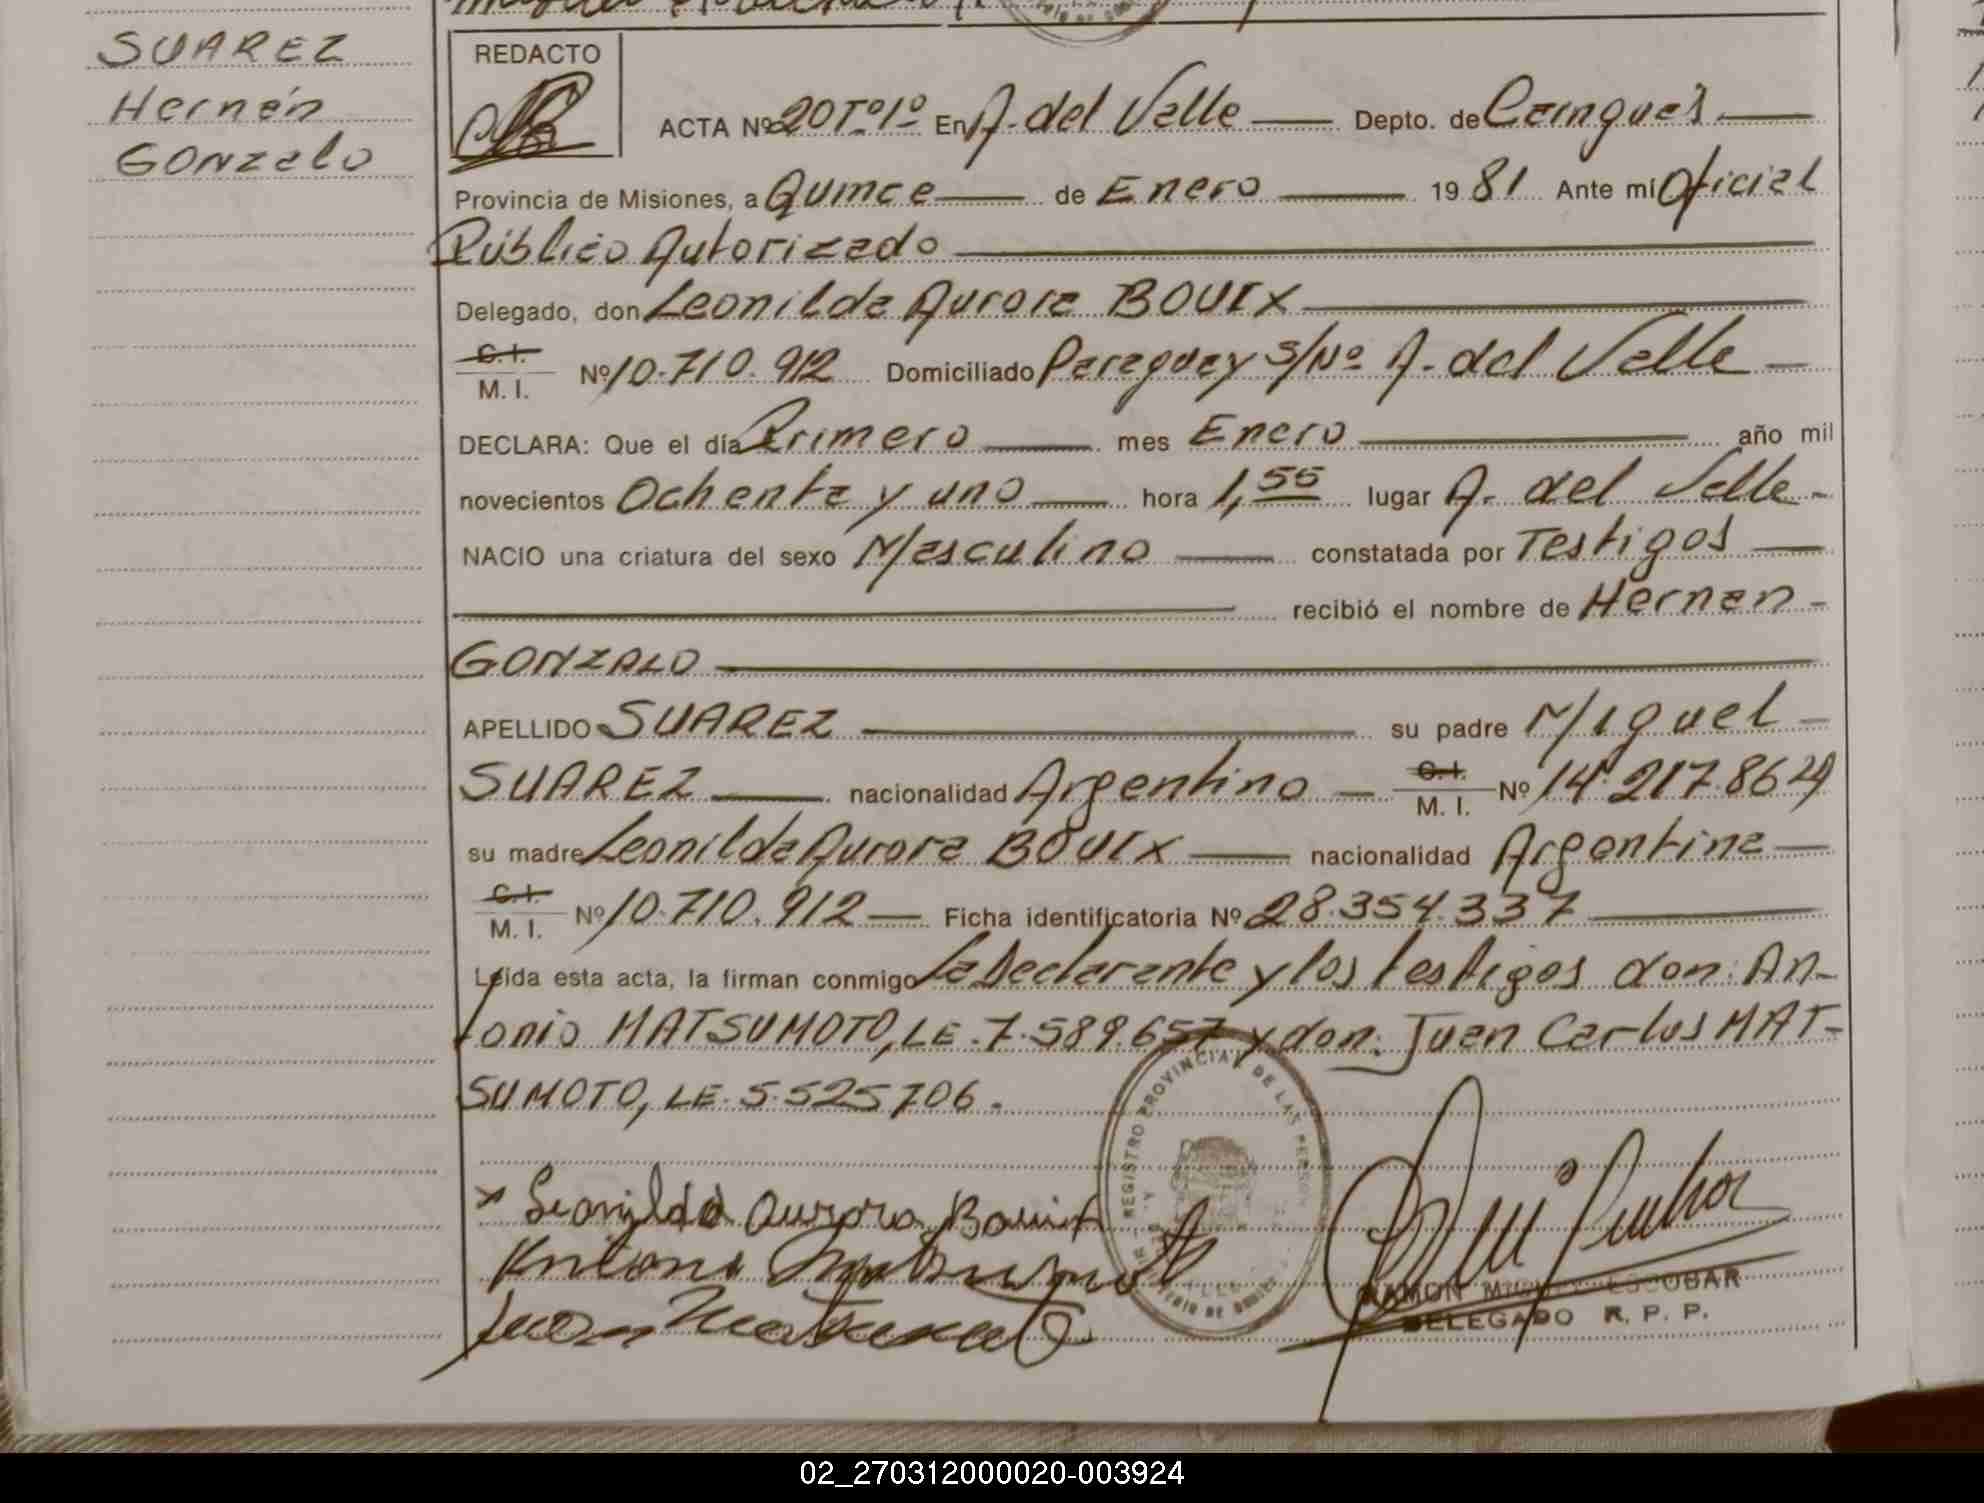 SUAREZ
Hernán
GONZalo
REDACTO
ACTA Nº 20 Tº1º En A. del Valle Depto. de Cainguás
Provincia de Misiones, a Quince de Enero 1981 Ante mí Oficial
Público Autorizado
Delegado, don Leonilda Aurora BOUIX
C.I.
M. I. Nº 10.710.912 Domiciliado Paraguay S/Nº A. del Valle
DECLARA: Que el día Primero mes Enero año mil
novecientos Ochenta y uno hora 1,55 lugar A. del Valle
NACIO una criatura del sexo Masculino constatada por Testigos
recibió el nombre de Hernan
GONZALO
APELLIDO SUAREZ su padre Miguel
SUAREZ nacionalidad Argentino C.I. M. I. Nº 14.217.864
su madre Leonilda Aurora BOUIX nacionalidad Argentina
C.I.
M. I. Nº 10.710.912 Ficha identificatoria Nº 28.354.337
Leída esta acta, la firman conmigo la Declarante y los testigos don: An-
tonio MATSUMOTO, LE. 7.589.657 y don: Juan Carlos MAT-
SUMOTO, LE. 5.525706.
REGISTRO PROVINCIAL DE LAS PERSON
x Leonilda Aurora Bouix
RAMON MIGUEL ESCOBAR
DELEGADO R. P. P.
02_270312000020-003924